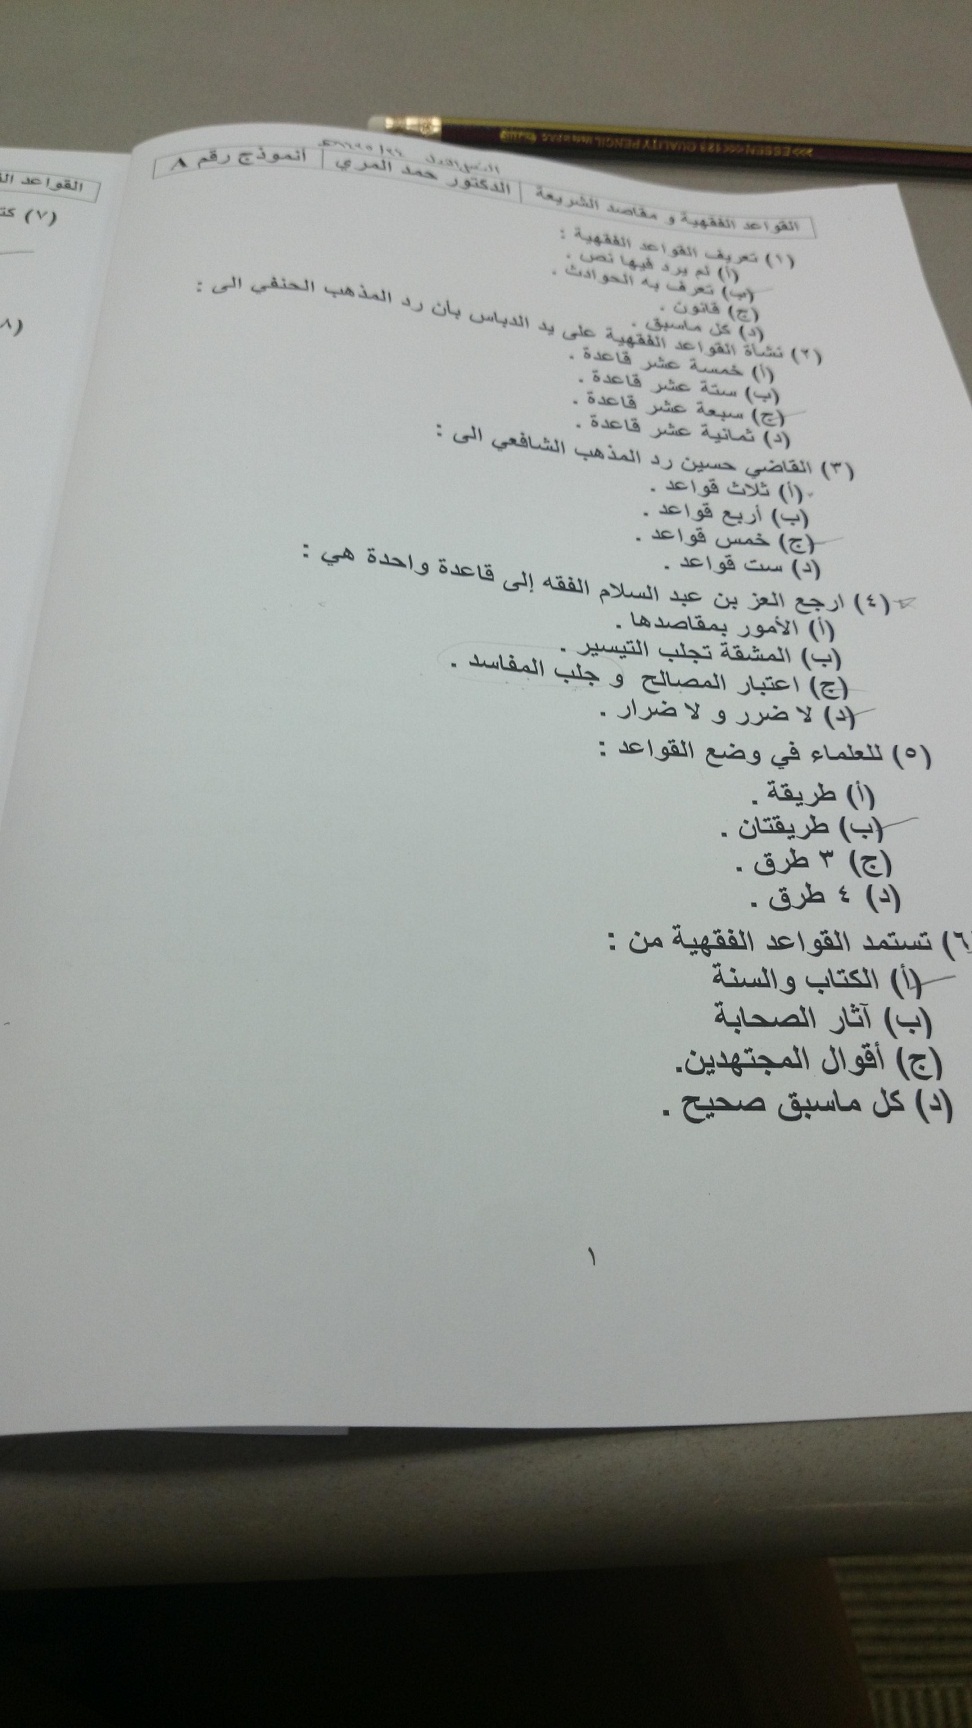 القواعد الفقهية و مقاصد الشريعة | الدكتور حمد المري | أنموذج رقم ٨
(١) تعريف القواعد الفقهية :
(أ) لم يرد فيها نص .
(ب) تعرف به الحوادث .
(ج) قانون .
(د) كل ماسبق .
(٢) نشأة القواعد الفقهية على يد الدباس بأن رد المذهب الحنفي الى :
(أ) خمسة عشر قاعدة .
(ب) ستة عشر قاعدة .
(ج) سبعة عشر قاعدة .
(د) ثمانية عشر قاعدة .
(٣) القاضي حسين رد المذهب الشافعي الى :
(أ) ثلاث قواعد .
(ب) أربع قواعد .
(ج) خمس قواعد .
(د) ست قواعد .
(٤) ارجع العز بن عبد السلام الفقه إلى قاعدة واحدة هي :
(أ) الأمور بمقاصدها .
(ب) المشقة تجلب التيسير .
(ج) اعتبار المصالح و جلب المفاسد .
(د) لا ضرر و لا ضرار .
(٥) للعلماء في وضع القواعد :
(أ) طريقة .
(ب) طريقتان .
(ج) ٣ طرق .
(د) ٤ طرق .
(٦) تستمد القواعد الفقهية من :
(أ) الكتاب والسنة
(ب) آثار الصحابة
(ج) أقوال المجتهدين.
(د) كل ماسبق صحيح .
١
القواعد
(٧)
ESSEN >>>123 QUALITY PENCIL